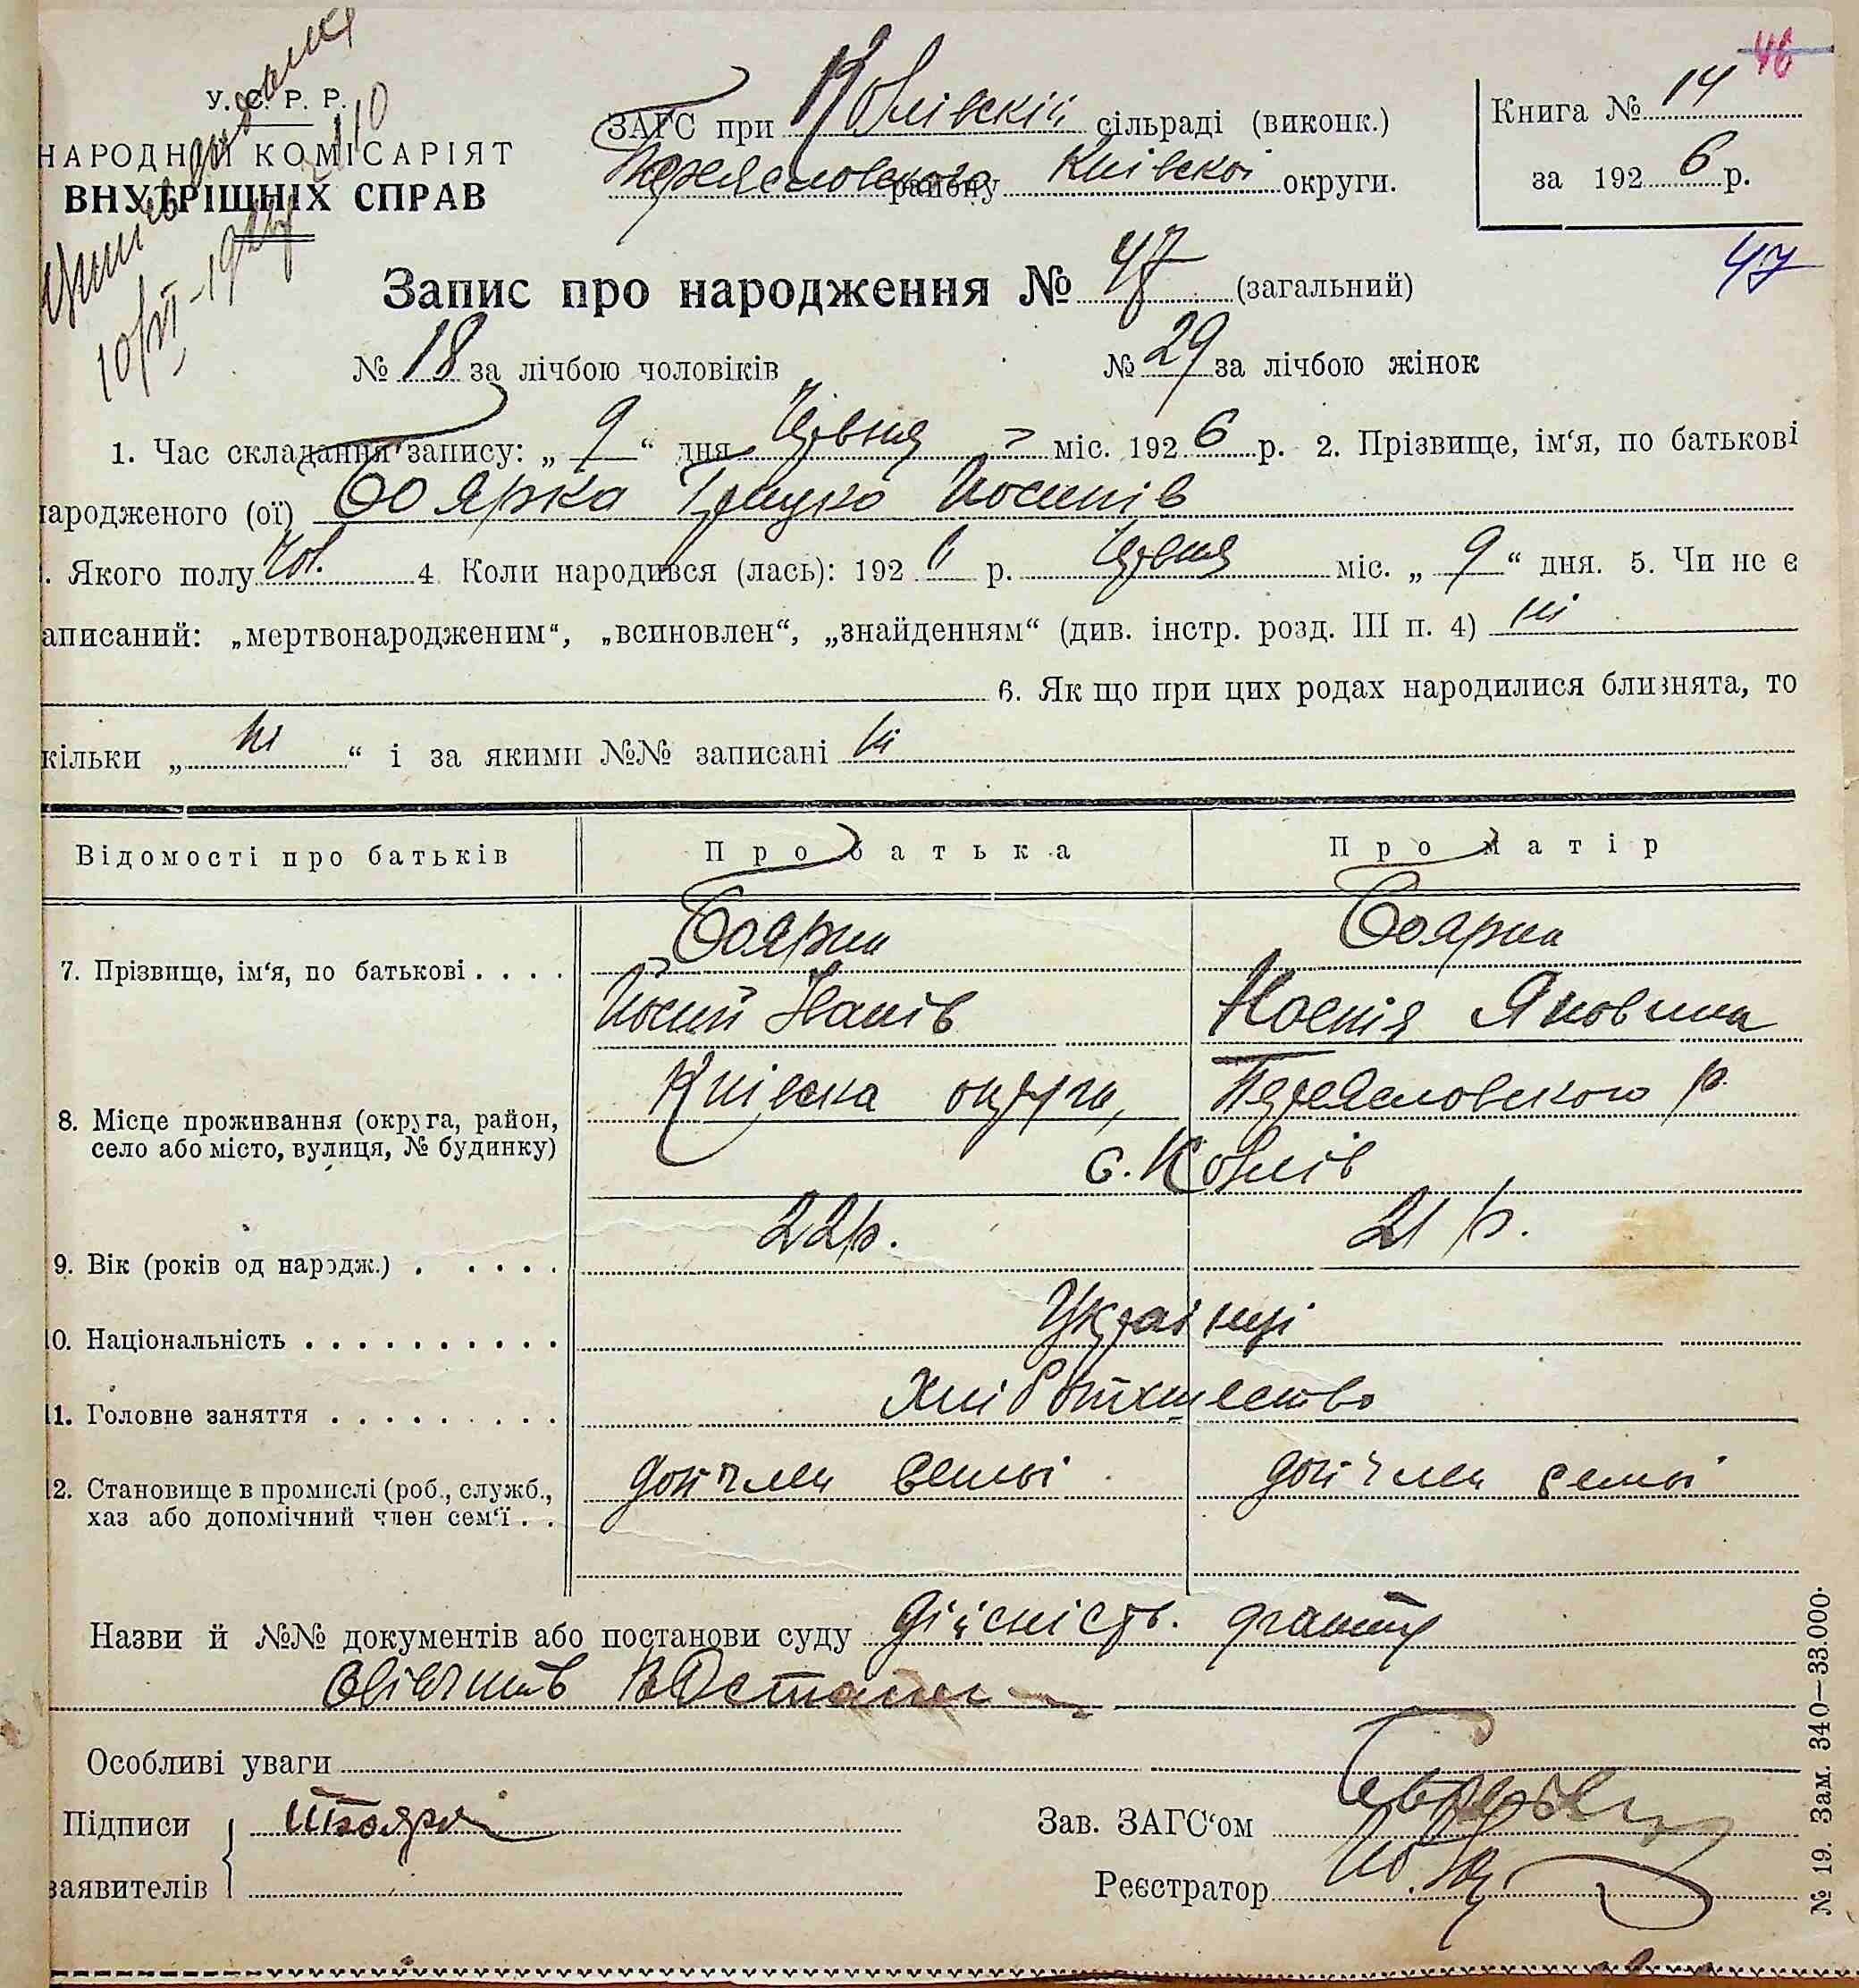 46
У. С. Р. Р.
НАРОДНІЙ КОМІСАРІЯТ
ВНУТРІШНІХ СПРАВ
10/VI-1926
ЗАГС при Ковлівскій сільраді (виконк.)
Переясловського району Київскої округи.
Книга № 14
за 1926 р.
47
Запис про народження № 47 (загальний)
№ 18 за лічбою чоловіків № 29 за лічбою жінок
1. Час складання запису: „ 9 “ дня Червня міс. 1926 р. 2. Прізвище, ім'я, по батькові
народженого (ої) Боярка Грицко Йосипів
. Якого полу Чол. 4 Коли народився (лась): 192 " р. Червня міс. „ 9 “ дня. 5. Чи не є
аписаний: „мертвонародженим“, „всиновлен“, „знайденням“ (див. інстр. розд. III п. 4) ні
6. Як що при цих родах народилися близнята, то
кільки „ ні “ і за якими №№ записані ні
Відомості про батьків Про батька Про матір
7. Прізвище, ім'я, по батькові . . . . Боярка Боярка
Йосип Іванів Ксенія Яковлина
8. Місце проживання (округа, район, село або місто, вулиця, № будинку) Київска округи, Переясловского р.
с. Ковлів
9. Вік (років од народж.) . . . . . 22 р. 21 р.
10. Національність . . . . . . . . . . Українці
11. Головне заняття . . . . . . . . . Хліборобство
12. Становище в промислі (роб., служб., хаз або допомічний член сем'ї . . доп член семьі доп член семьі
Назви й №№ документів або постанови суду дійсність факту
свідчив
Особливі уваги
Підписи
заявителів
Зав. ЗАГС'ом
Реєстратор
№ 19. Зам. 340—33.000.